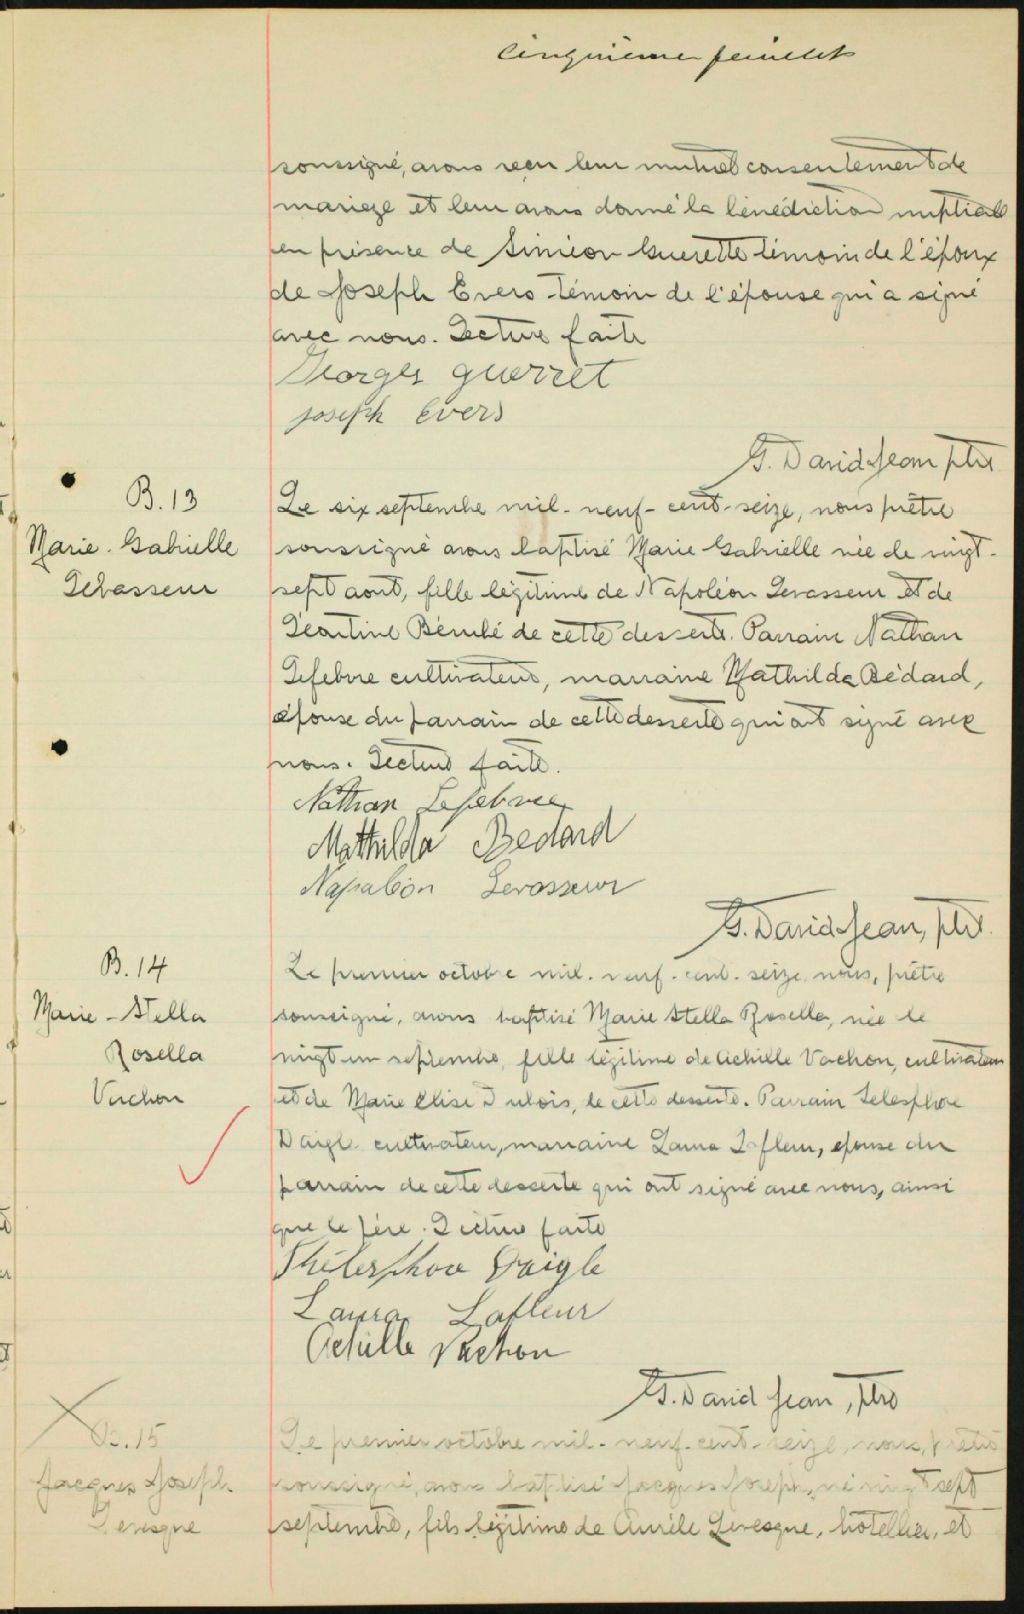 Cinquième feuillet
soussigné, avons reçu leur mutuel consentement de
mariage et leur avons donné la bénédiction nuptiale
en présence de Siméon Guerette témoin de l'époux
de Joseph Evers témoin de l'épouse qui a signé
avec nous. Lecture faite
Georges Guerret
Joseph Evers
G. David Jean ptre
B. 13
Marie. Gabrielle
Levasseur
Le six septembre mil-neuf-cent-seize, nous prêtre
soussigné avons baptisé Marie Gabrielle née le vingt-
sept aout, fille légitime de Napoléon Levasseur et de
Léontine Bérubé de cette desserte. Parrain Nathan
Lefebvre cultivateur, marraine Mathilda Bédard,
épouse du parrain de cette desserte qui ont signé avec
nous. Lecture faite.
Nathan Lefebvre
Mathilda Bedard
Napaléon Levasseur
G. David Jean, ptre.
B. 14
Marie-Stella
Rosella
Vachon
Le premier octobre mil-neuf-cent-seize, nous, prêtre
soussigné, avons baptisé Marie Stella Rosella, née le
vingt un septembre, fille légitime de Achille Vachon, cultivateur
et de Marie Elise Dubois, de cette desserte. Parrain Telesphore
Daigle cultivateur, marraine Laura Lafleur, epouse du
parrain de cette desserte qui ont signé avec nous, ainsi
que le père. Lecture faite
Thélesphore Daigle
Laura Lafleur
Achille Vachon
G. David Jean, ptre
B. 15
Jacques Joseph
Levesque
Le premier octobre mil-neuf-cent-seize, nous, prêtre
soussigné, avons baptisé Jacques Joseph, né vingt sept
septembre, fils légitime de Aurèle Levesque, hotellier, et